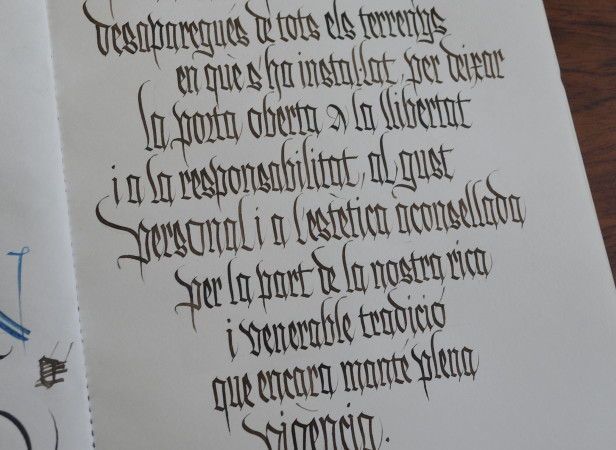 desaparegués de tots els terrenys
en què s'ha instal·lat, per deixar
la porta oberta a la llibertat
i a la responsabilitat, al gust
personal i a l'estètica aconsellada
per la part de la nostra rica
i venerable tradició
que encara manté plena
vigència.